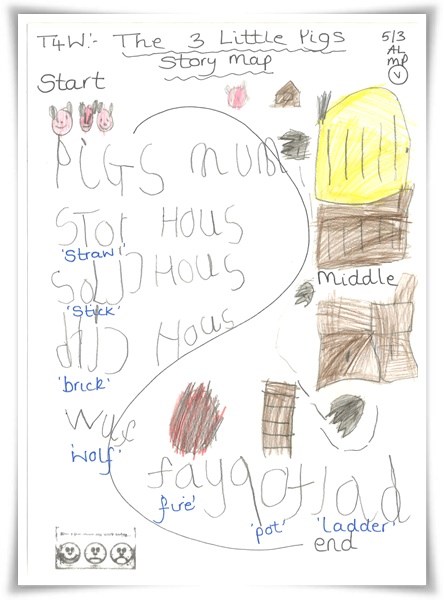 T4W:- The 3 Little Pigs
5/3
Story Map
AL
MP
V
Start
PiGS mum
STOr HOUS
'Straw'
HOUS
'Stick'
Middle
HOUS
'brick'
'wolf'
fay pot lad
fire'
'pot'
'Ladder'
end